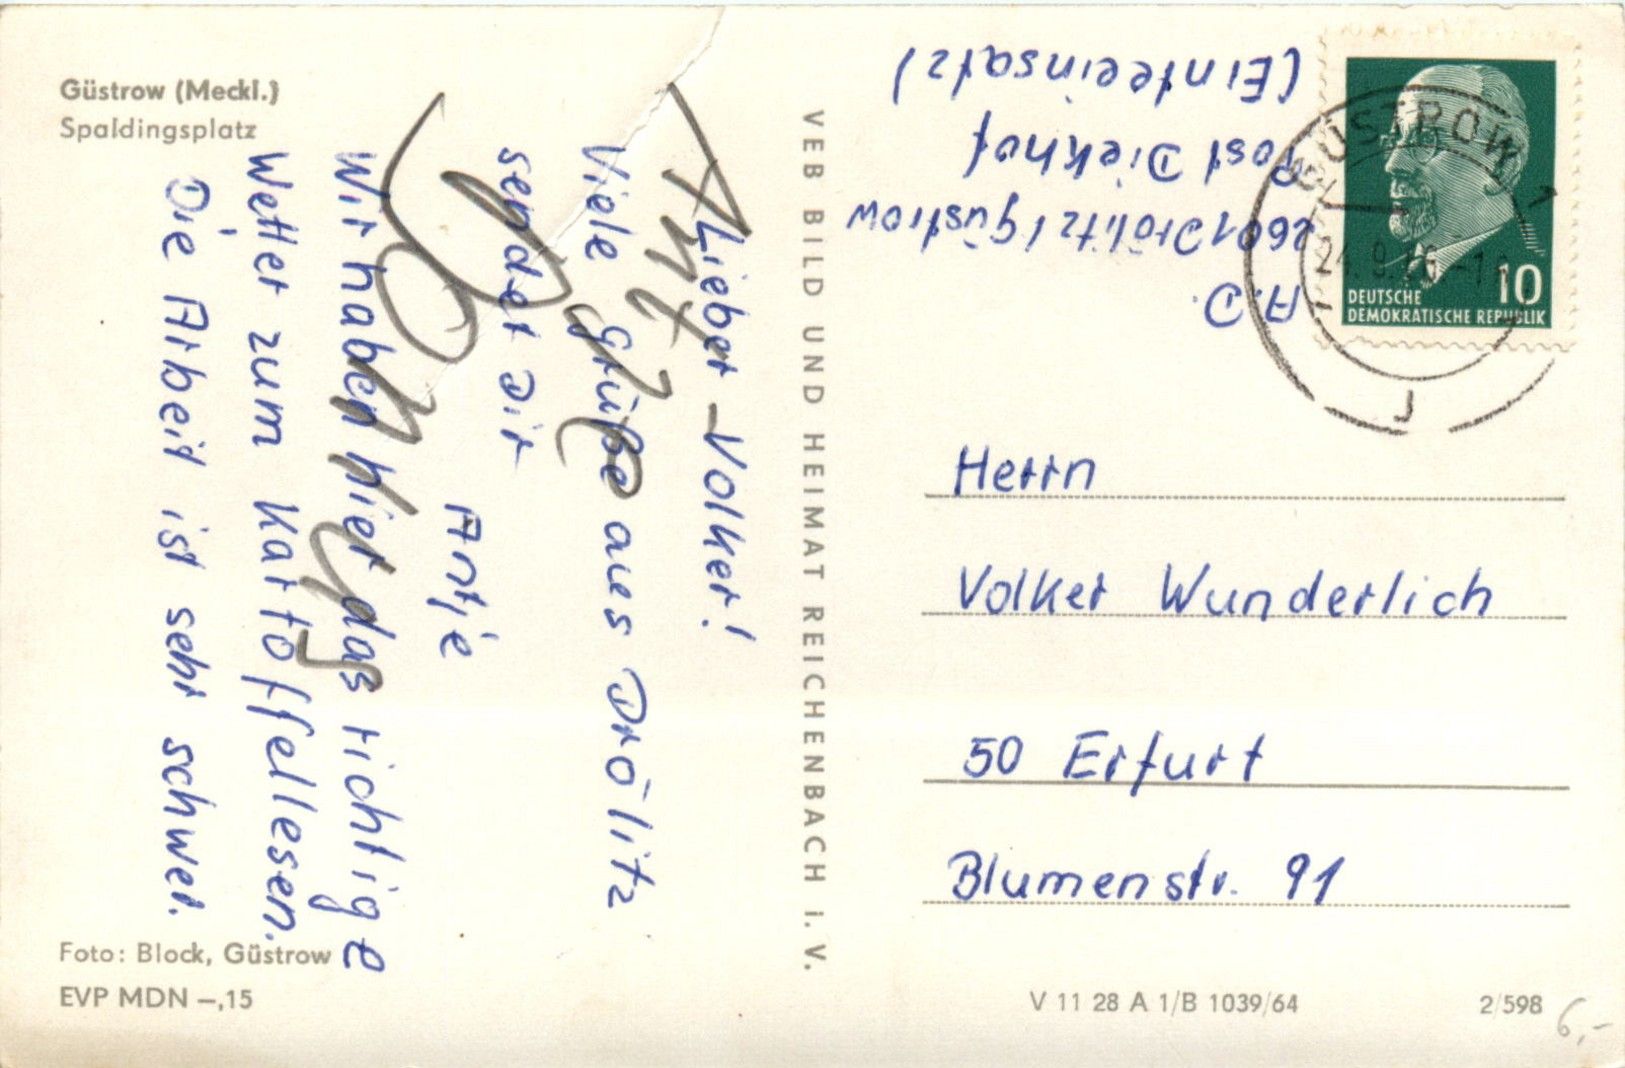 Güstrow (Meckl.)
Spaldingsplatz
Lieber Volker!
Viele Grüße aus Drölitz
sendet Dir
Antje
Wir haben hier das richtige
Wetter zum Kartoffellesen.
Die Arbeit ist sehr schwer.
Foto: Block, Güstrow
EVP MDN –,15
VEB BILD UND HEIMAT REICHENBACH I. V.
A.D.
2601 Drölitz / Güstrow
Post Diekhof
(Ernteeinsatz)
GÜSTROW 1
24.9.
DEUTSCHE
DEMOKRATISCHE REPUBLIK
10
Herrn
Volker Wunderlich
50 Erfurt
Blumenstr. 91
V 11 28 A 1/B 1039/64
2/598
6,-